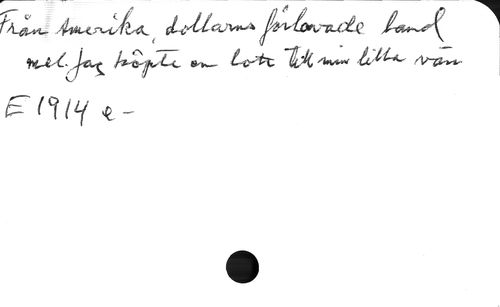 Från Amerika, dollarns förlovade land
mel. Jag köpte en lott till min lilla vän
E 1914 e -